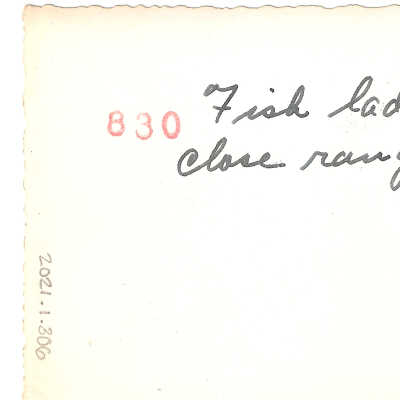 830
Fish lad
close rang
2021.1.306